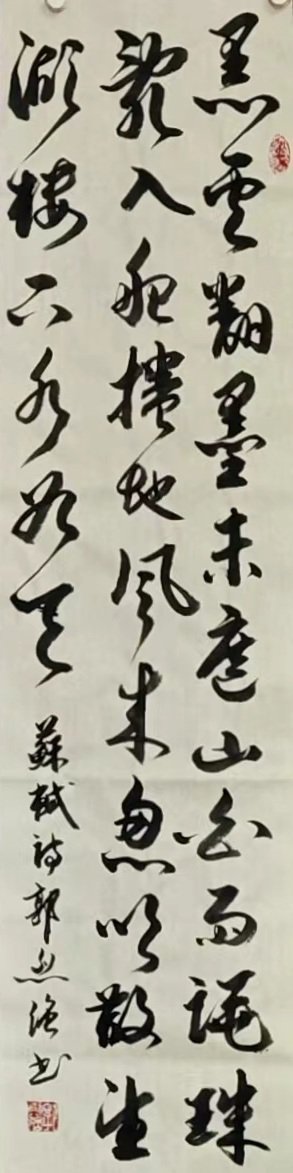 黑雲翻墨未遮山白雨跳珠
亂入船捲地風來忽吹散望
湖樓下水如天
蘇軾詩郭書